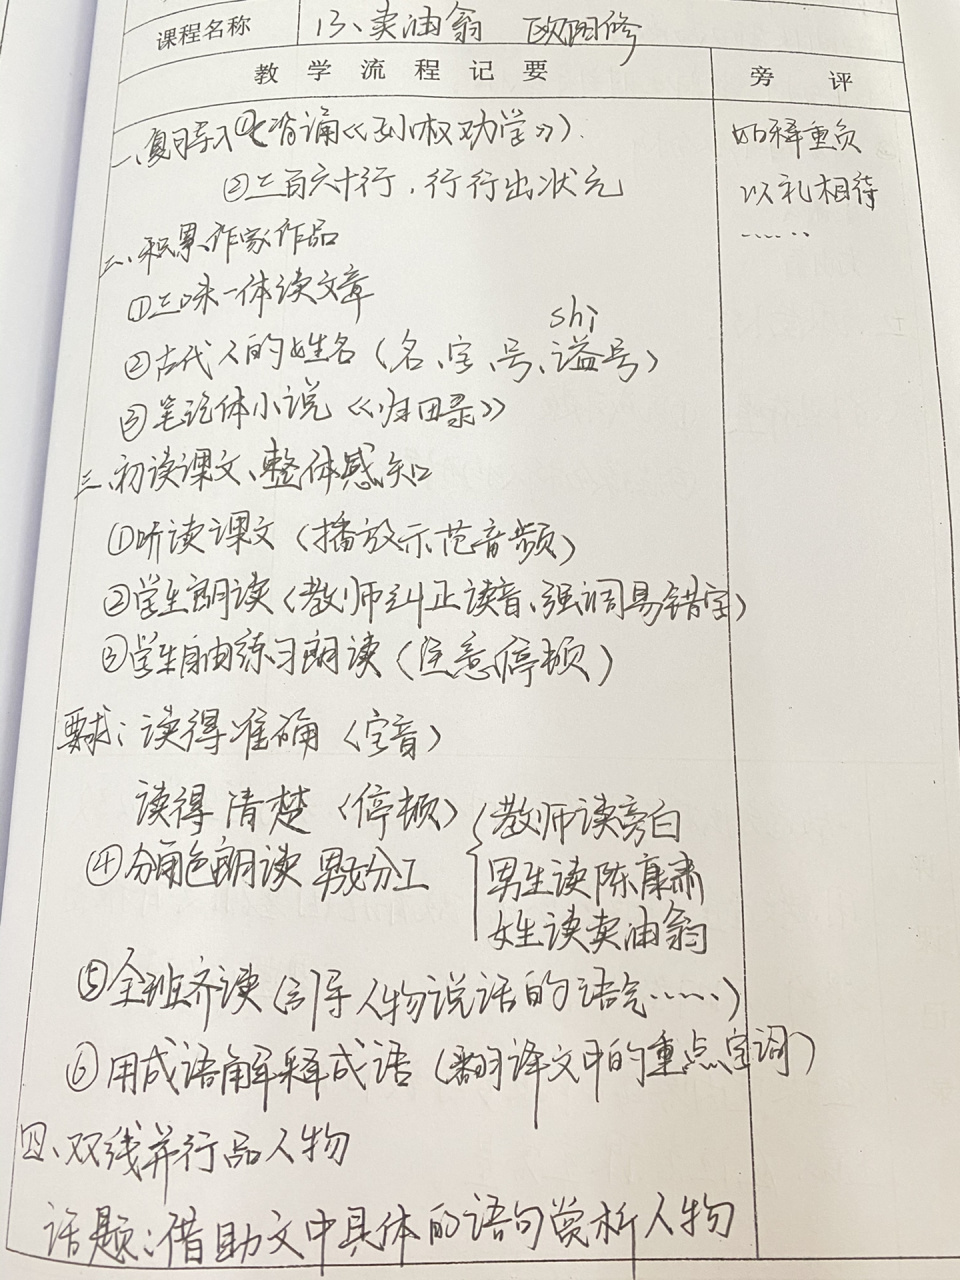 课程名称 13、卖油翁 欧阳修
教学流程记要 旁评
一、复习导入①背诵《孙权劝学》). 如释重负
②三百六十行,行行出状元 以礼相待
二、积累作家作品 ……
①三味一体读文章
shi
②古代人的姓名(名、字、号、谥号)
③笔记体小说《归田录》
三、初读课文、整体感知
①听读课文(播放示范音频)
②学生朗读(教师纠正读音、强调易错字)
③学生自由练习朗读(注意停顿)
要求:读得准确(字音)
读得清楚(停顿)
教师读旁白
④分角色朗读 男女分工 男生读陈康肃
女生读卖油翁
⑤全班齐读(引导人物说话的语气……)
⑥用成语解释成语(翻译文中的重点字词)
四、双线并行品人物
话题:借助文中具体的语句赏析人物